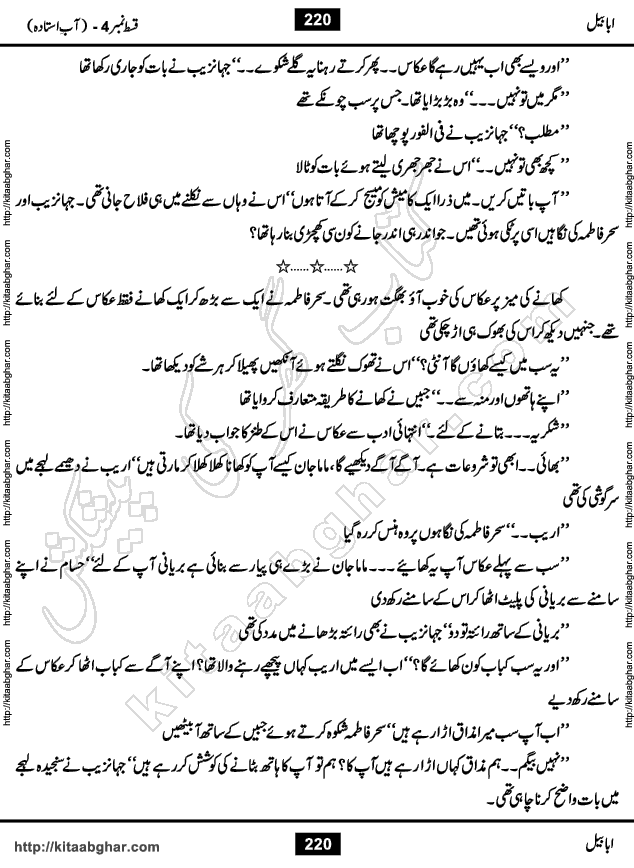 ابابیل
220
قسط نمبر 4 - (آبِ استادہ)
’’اور ویسے بھی اب یہیں رہے گا عکاس۔۔پھر کرتے رہنا یہ گلے شکوے۔۔‘‘جہانزیب نے بات کو جاری رکھا تھا
’’مگر میں تو نہیں۔۔۔‘‘وہ بڑبڑایا تھا۔جس پر سب چونکے تھے
’’مطلب؟‘‘جہانزیب نے فی الفور پوچھا تھا
’’کچھ بھی تو نہیں۔۔‘‘اس نے جھرجھری لیتے ہوئے بات کو ٹالا
’’آپ باتیں کریں۔میں ذرا ایک کا میش کو میسج کر کے آتا ہوں‘‘اس نے وہاں سے نکلنے میں ہی فلاح جانی تھی۔جہانزیب اور
سحر فاطمہ کی نگاہیں اسی پر ٹکی ہوئی تھیں۔جو اندر ہی اندر جانے کون سی کھچڑی بنا رہا تھا؟
☆......☆......☆
کھانے کی میز پر عکاس کی خوب آؤ بھگت ہو رہی تھی۔سحر فاطمہ نے ایک سے بڑھ کر ایک کھانے فقط عکاس کے لئے بنائے
تھے۔جنہیں دیکھ کر اس کی بھوک ہی اڑ چکی تھی
’’یہ سب میں کیسے کھاؤں گا آنٹی؟‘‘اس نے تھوک نگلتے ہوئے آنکھیں پھیلا کر ہر شے کو دیکھا تھا۔
’’اپنے ہاتھوں اور منہ سے۔۔‘‘جبیں نے کھانے کا طریقہ متعارف کروایا تھا
’’شکریہ۔۔۔بتانے کے لئے۔‘‘انتہائی ادب سے عکاس نے اس کے طنز کا جواب دیا تھا۔
’’بھائی۔۔ابھی تو شروعات ہے۔آگے آگے دیکھیے گا،ماما جان کیسے آپ کو کھانا کھلا کھلا کر مارتی ہیں‘‘اریب نے دھیمے لہجے میں
سرگوشی کی تھی
’’اریب۔۔‘‘سحر فاطمہ کی نگاہوں پر وہ ہنس کر رہ گیا
’’سب سے پہلے عکاس آپ یہ کھائیے۔۔۔ماما جان نے بڑے ہی پیار سے بنائی ہے بریانی آپ کے لئے‘‘حسام نے اپنے
سامنے سے بریانی کی پلیٹ اٹھا کر اس کے سامنے رکھ دی
’’بریانی کے ساتھ رائتہ تو دو‘‘جہانزیب نے بھی رائتہ بڑھانے میں مدد کی تھی
’’اور یہ سب کباب کون کھائے گا؟‘‘اب ایسے میں اریب کہاں پیچھے رہنے والا تھا؟اپنے آگے سے کباب اٹھا کر عکاس کے
سامنے رکھ دیے
’’اب آپ سب میرا مذاق اڑا رہے ہیں‘‘سحر فاطمہ شکوہ کرتے ہوئے جبیں کے ساتھ آ بیٹھیں
’’نہیں بیگم۔۔ہم مذاق کہاں اڑا رہے ہیں آپ کا؟ہم تو آپ کا ہاتھ بٹانے کی کوشش کر رہے ہیں‘‘جہانزیب نے سنجیدہ لہجے
میں بات واضح کرنا چاہی تھی۔
http://kitaabghar.com
http://kitaabghar.com
http://kitaabghar.com
http://kitaabghar.com
http://kitaabghar.com
http://kitaabghar.com
http://kitaabghar.com
http://kitaabghar.com
http://kitaabghar.com
http://kitaabghar.com
http://kitaabghar.com
http://kitaabghar.com
کتاب گھر کی پیشکش
kitaabghar.com
ابابیل
220
http://kitaabghar.com